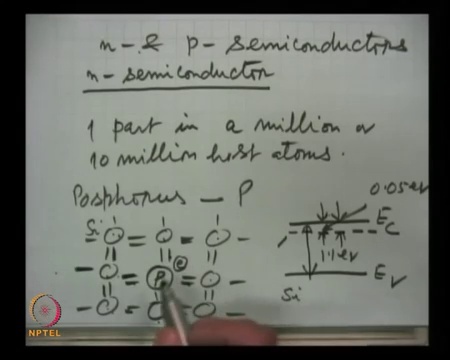 n- & p- semiconductors
n- semiconductor
1 part in a million or
10 million host atoms.
Posphorus - P
0.05 eV
Si
Ec
1.1 eV
P e
Ev
Si
NPTEL